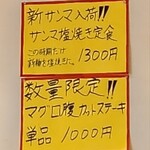 新サンマ入荷!!
サンマ塩焼き定食
この時期だけ
1300円
数量限定!!
マグロ腹カットステーキ
単品 1000円